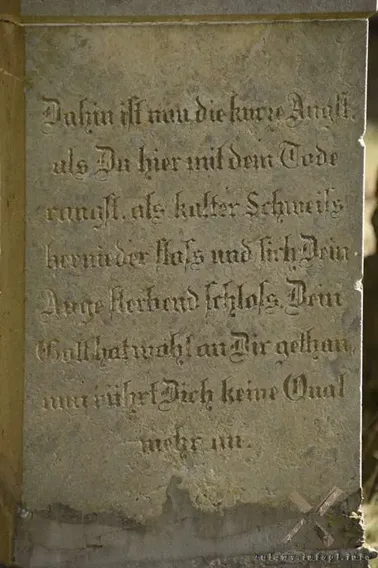 Dahin ist nun die kurze Angst,
als Du hier mit dem Tode
rangst, als kalter Schweiss
hernieder floss und sich Dein
Auge sterbend schloss. Dein
Gott hat wohl an Dir gethan,
nun rührt Dich keine Qual
mehr an.